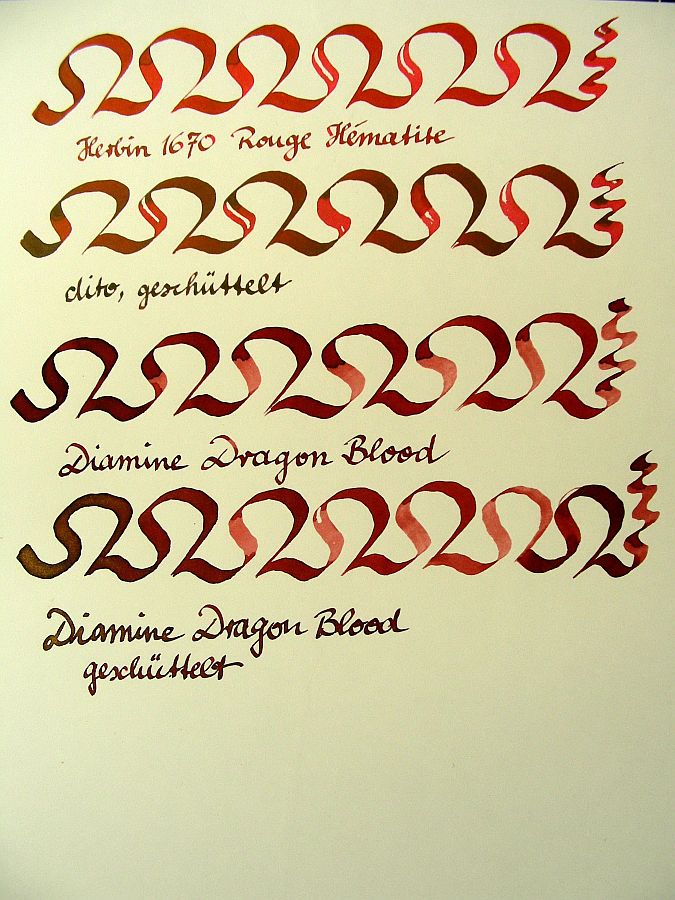 Herbin 1670 Rouge Hématite
dito, geschüttelt
Diamine Dragon Blood
Diamine Dragon Blood
geschüttelt